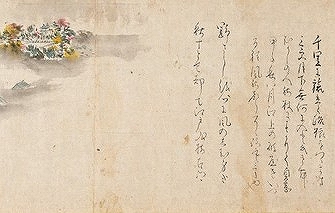 千里に旅立て路粮をつゝます
三更月下無何に入と云けむ
むかしの人の杖にすかりて貞享
甲子秋八月江上の破屋をいつ
る程風の聲そゝろ寒け也
野さらしを心に風のしむ身哉
秋十とせ却て江戸を指古郷